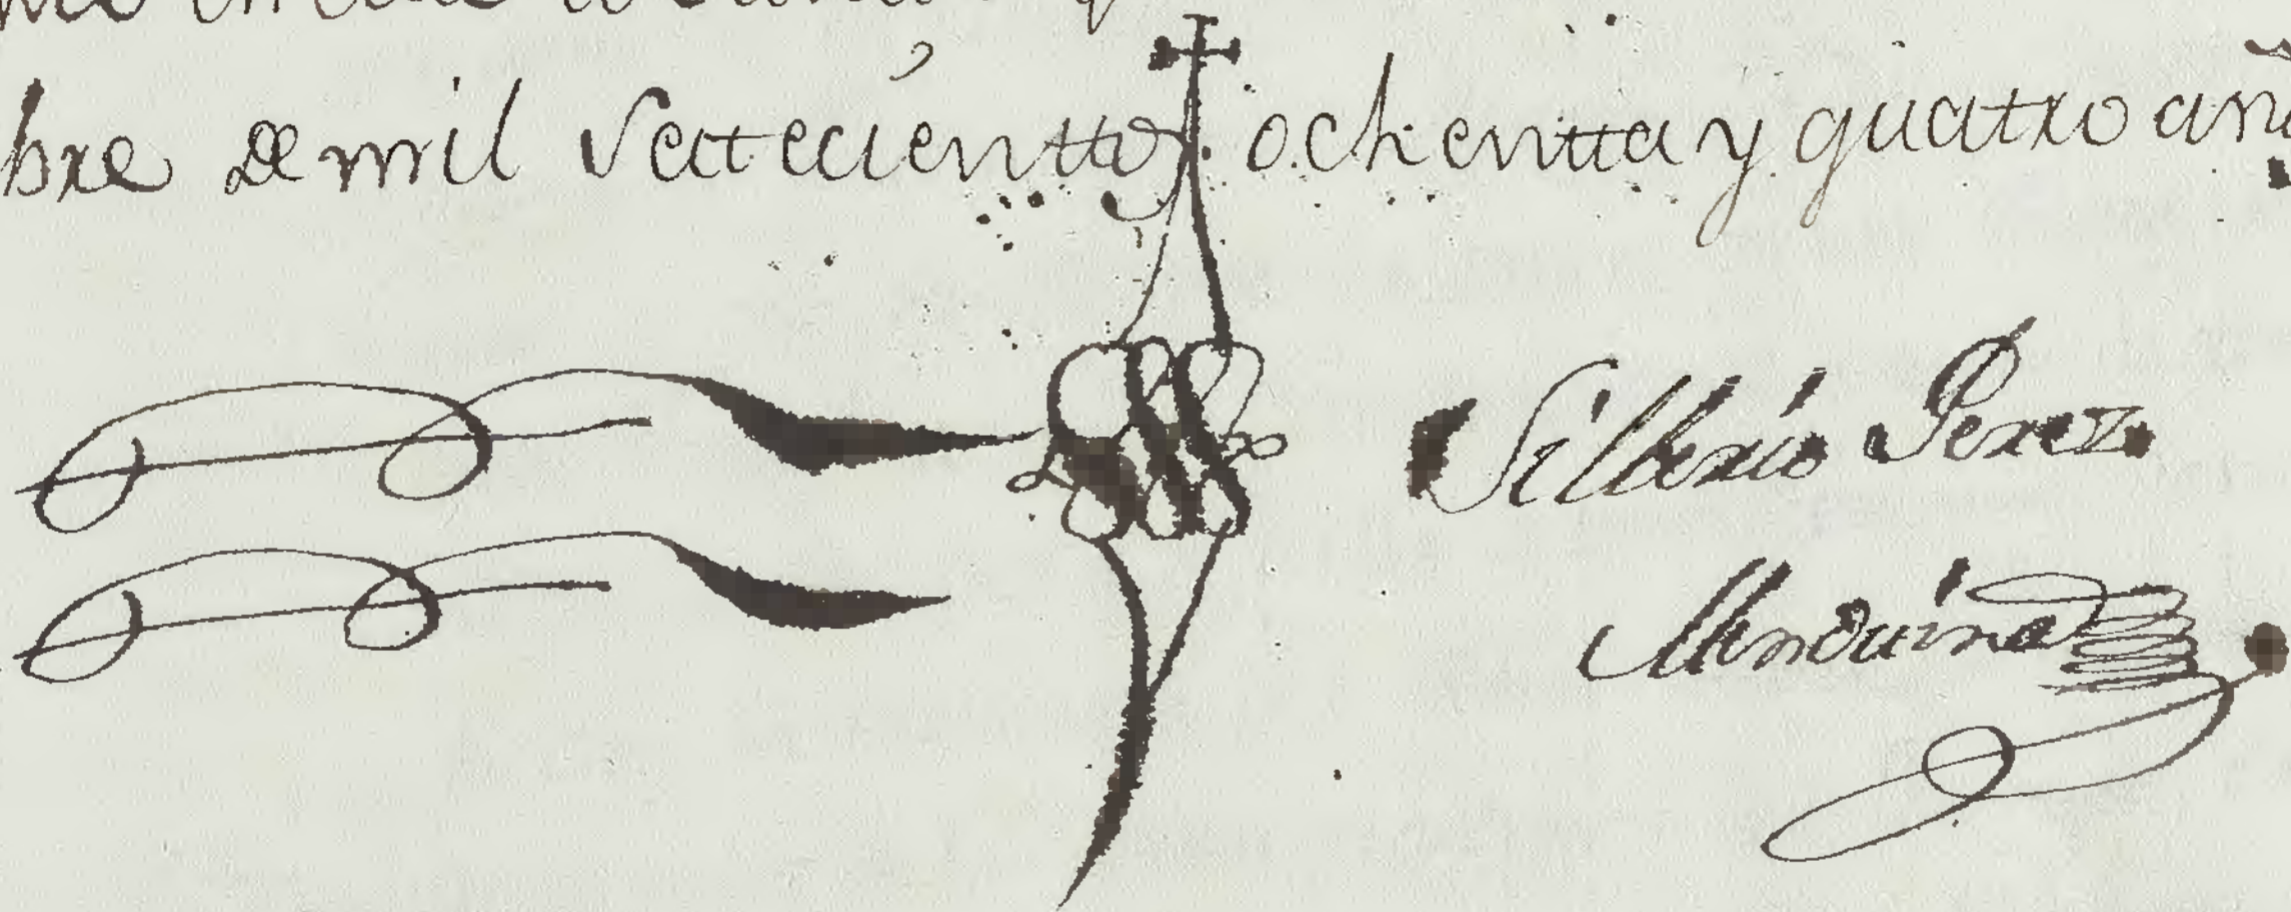 bre de mil settecientos ochentta y quatro añ
Silberio Perez
Menduina